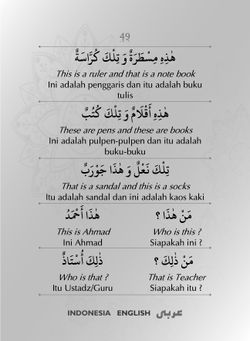 49
هٰذِهِ مِسْطَرَةٌ وَ تِلْكَ كُرَّاسَةٌ
This is a ruler and that is a note book
Ini adalah penggaris dan itu adalah buku
tulis
هٰذِهِ أَقْلَامٌ وَ تِلْكَ كُتُبٌ
These are pens and these are books
Ini adalah pulpen-pulpen dan itu adalah
buku-buku
تِلْكَ نَعْلٌ وَ هٰذَا جَوْرَبٌ
That is a sandal and this is a socks
Itu adalah sandal dan ini adalah kaos kaki
مَنْ هٰذَا ؟ هٰذَا أَحْمَدُ
This is Ahmad Who is this ?
Ini Ahmad Siapakah ini ?
مَنْ ذٰلِكَ ؟ ذٰلِكَ أُسْتَاذٌ
Who is that ? That is Teacher
Itu Ustadz/Guru Siapakah itu ?
INDONESIA ENGLISH عربي